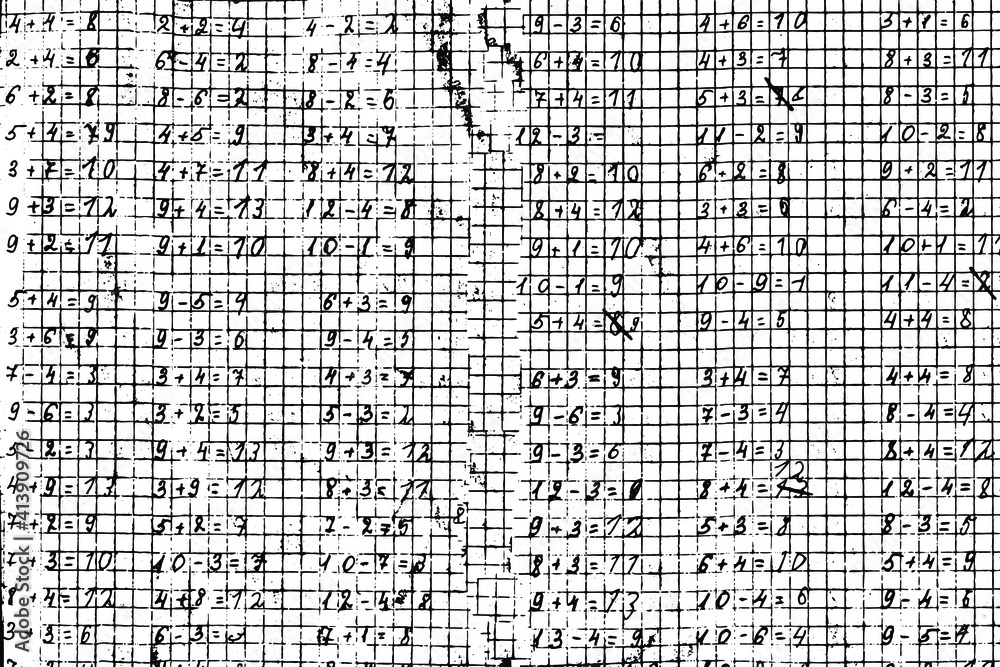 4+4=8 2+2=4 4-2=2 9-3=6 4+6=10 5+1=6
2+4=6 6-4=2 8-4=4 6+4=10 4+3=7 8+3=11
6+2=8 8-6=2 8-2=6 7+4=11 5+3= 8-3=5
5+4=79 4+5=9 3+4=7 12-3= 11-2=9 10-2=8
3+7=10 4+7=11 8+4=12 8+2=10 6+2=8 9+2=11
9+3=12 9+4=13 12-4=8 8+4=12 3+3=6 6-4=2
9+2=11 9+1=10 10-1=9 9+1=10 4+6=10 10+1=11
10-1=9 10-9=1 11-4=
5+4=9 9-5=4 6+3=9 5+4=89 9-4=5 4+4=8
3+6=9 9-3=6 9-4=5
7-4=3 3+4=7 4+3=7 6+3=9 3+4=7 4+4=8
9-6=3 3+2=5 5-3=2 9-6=3 7-3=4 8-4=4
5-2=3 9+4=13 9+3=12 9-3=6 7-4=3 8+4=12
4+9=13 3+9=12 8+3=11 12-3=9 8+4=12 12-4=8
7+2=9 5+2=7 7-2=5 9+3=12 5+3=8 8-3=5
7+3=10 10-3=7 10-7=3 8+3=11 6+4=10 5+4=9
8+4=12 4+8=12 12-4=8 9+4=13 10-4=6 9-4=5
3+3=6 6-3=3 7+1=8 13-4=9 10-6=4 9-5=4
Adobe Stock | #413909726